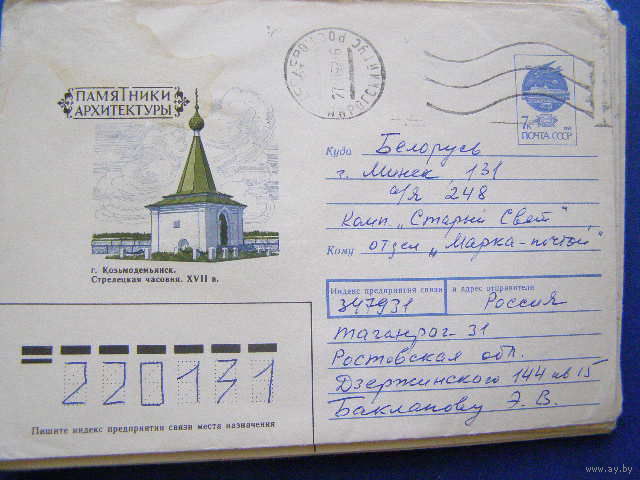 ПАМЯТНИКИ
АРХИТЕКТУРЫ
г. Козьмодемьянск.
Стрелецкая часовня. XVII в.
7к
ПОЧТА СССР
Куда Беларусь
г. Минск, 131
а/я 248
Комп. „Старый Свет",
Кому отдел „Марка-почтой"
Индекс предприятия связи и адрес отправителя
347931 Россия
Таганрог-31
Ростовская обл.
Дзержинского 144 кв 15
Бакланову Э. В.
220131
Пишите индекс предприятия связи места назначения
www.ay.by